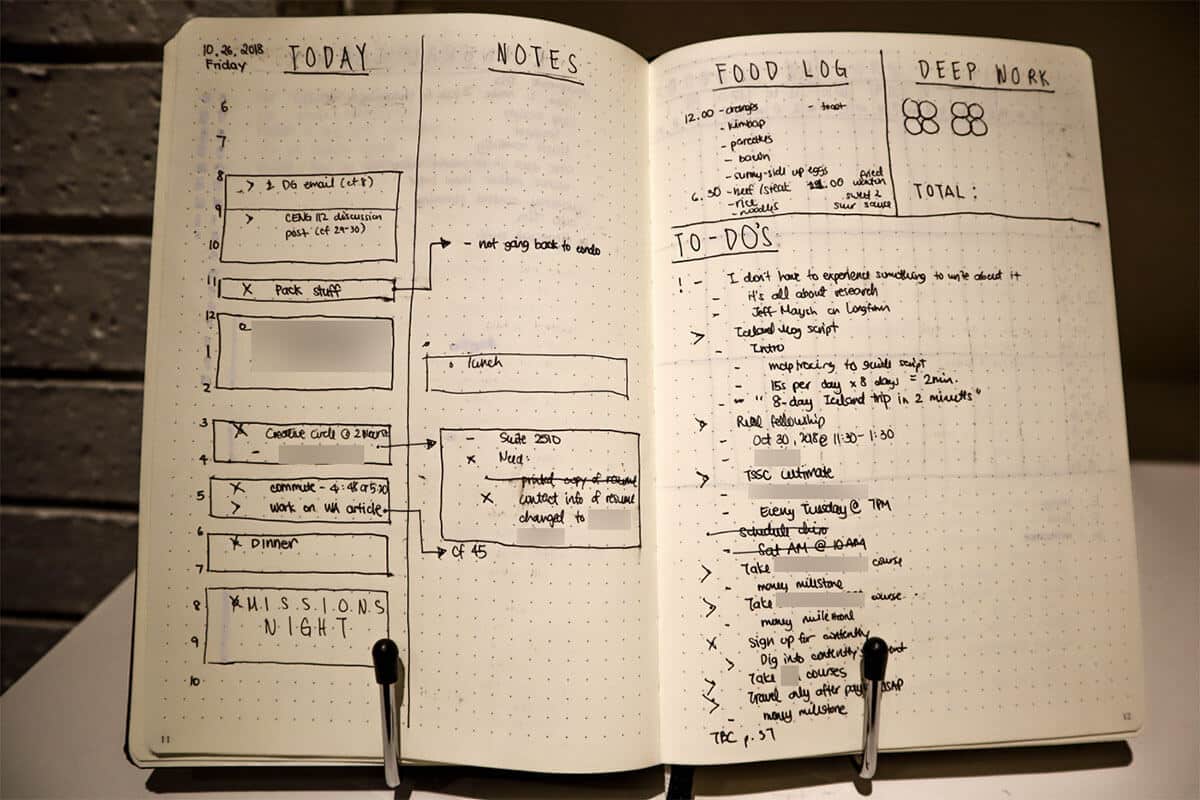 10.26.2018
Friday
TODAY
6
7
8
> DG email (cf 8)
9
> CENG 112 discussion
post (cf 29-30)
10
11
x Pack stuff
12
1
2
3
x Creative Circle @
-
4
5
x commute - 4:48 or 5:30
> work on WA article
6
x Dinner
7
8
x M.I.S.S.I.O.N.S
N.I.G.H.T
9
10
11
NOTES
- not going back to condo
• lunch
- Suite 2510
x Need:
- printed copy of resume
x contact info of resume
changed to
cf 45
FOOD LOG
12.00 - - toast
- kimbap
- pancakes
- bacon
- sunny-side up eggs
6.30 - beef/steak .00 fried wonton
- rice sweet &
- noodles sour sauce
DEEP WORK
TOTAL:
TO-DO'S
! - I don't have to experience something to write about it
- It's all about research
- Jeff Maysh on Longform
> Iceland vlog script
- Intro
- map tracing to guide script
- 15s per day x 8 days = 2min.
- "8-day Iceland trip in 2 minutes"
> Real fellowship
- Oct 30, 2018 @ 11:30 - 1:30
-
> TSSC Ultimate
-
- Every Tuesday @ 7PM
- Schedule chiro
- Sat AM @ 10AM
> Take course
- money milestone
> Take course
- money milestone
x Sign up for contently
> Dig into contently's
> Take courses
> Travel only after pay ASAP
- money milestone
TBC p. 37
12